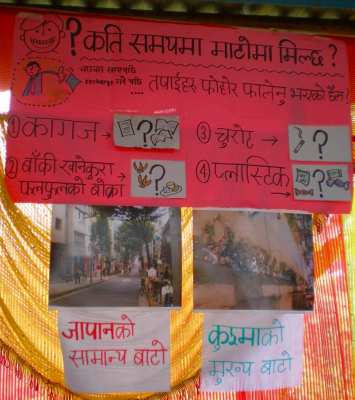 ? कति समयमा माटोमा मिल्छ ?
.... तपाईहरु फोहोर फाल्नु भएको छैन !
① कागज → ?
② बाँकी खानेकुरा → ?
फलफुलको बोक्रा
③ चुरोट → ?
④ प्लास्टिक → ?
जापानको
सामान्य बाटो
कुश्माको
मुख्य बाटो